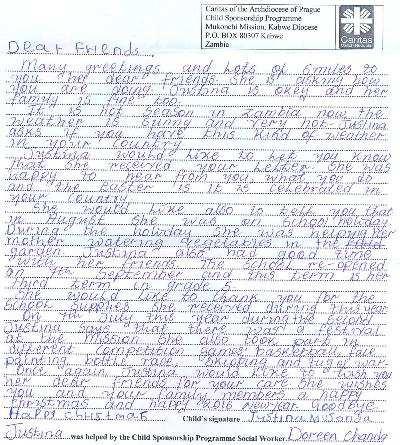 Caritas of the Archdiocese of Prague
Child Sponsorship Programme
Mukonchi Mission, Kabwe Diocese
P.O. BOX 80397 Kabwe
Zambia
Caritas
Dear Friends
Many greetings and Lots of smiles to
you her dear friends. She is asking how
you are doing Justina is okey and her
family is fine too.
It is hot season in Zambia now the
weather is shining and very hot Justina
asks if you have this kind of weather
in your country
Justina would like to let you know
that she received your Letter she was
happy to hear from you what you do
and the Easter is it is celebrated in
your country.
She would like also to tell you that
in August she was on school holiday
During the holiday she was helping her
mother watering vegetables in the
garden Justina also had good time
with her friends. The school re-opened
on 7th September and this term is her
third term in grade 5
She would like to thank you for the
school supplies she received during this year
On July this year during the second
Justina says that there was a festival
at the mission she also took part in
different competition games, basketball, face
painting, bottle race, skipping and tug of war
Once again Justina would like to thank you
her dear friends for your care She wishes
you and your family members a happy
Christmas and happy new year. Goodbye
Happy Christmas
Child's signature Justina Musonda
Justina was helped by the Child Sponsorship Programme Social Worker. Doreen Chanda